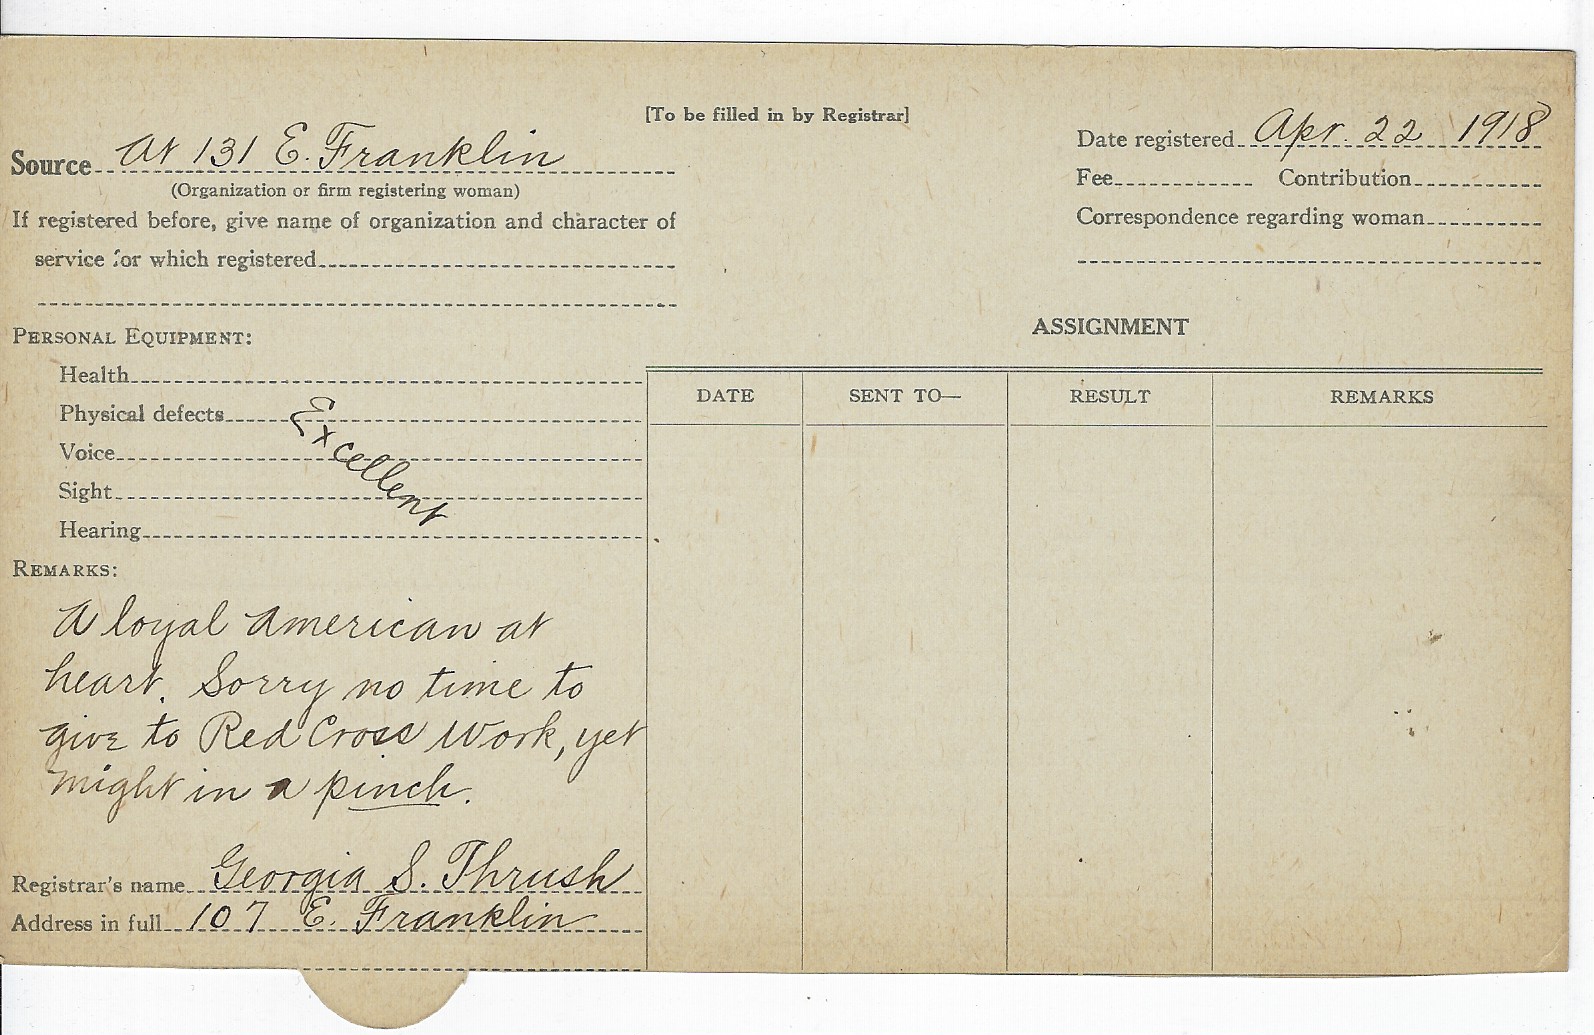 [To be filled in by Registrar]
Source At 131 E. Franklin
(Organization or firm registering woman)
If registered before, give name of organization and character of
service for which registered
Date registered Apr. 22 1918
Fee Contribution
Correspondence regarding woman
PERSONAL EQUIPMENT:
Health
Physical defects
Voice
Sight
Hearing
Excellent
REMARKS:
A loyal American at
heart. Sorry no time to
give to Red Cross Work, yet
might in a pinch.
Registrar's name Georgia S. Thrush
Address in full 107 E. Franklin
ASSIGNMENT
DATE SENT TO— RESULT REMARKS